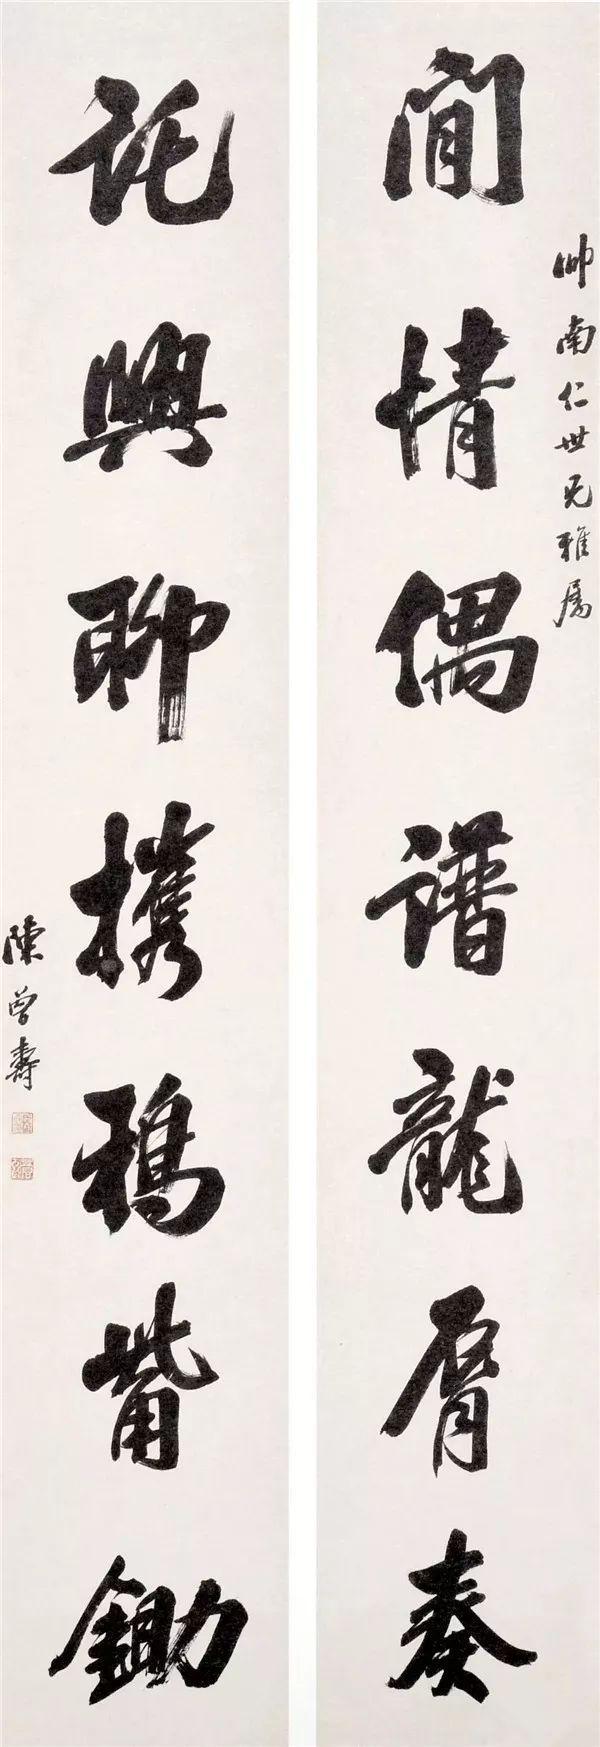 帥南仁世兄雅屬
閒情偶譜龍脣奏
託興聊攜鴉觜鋤
陳曾壽